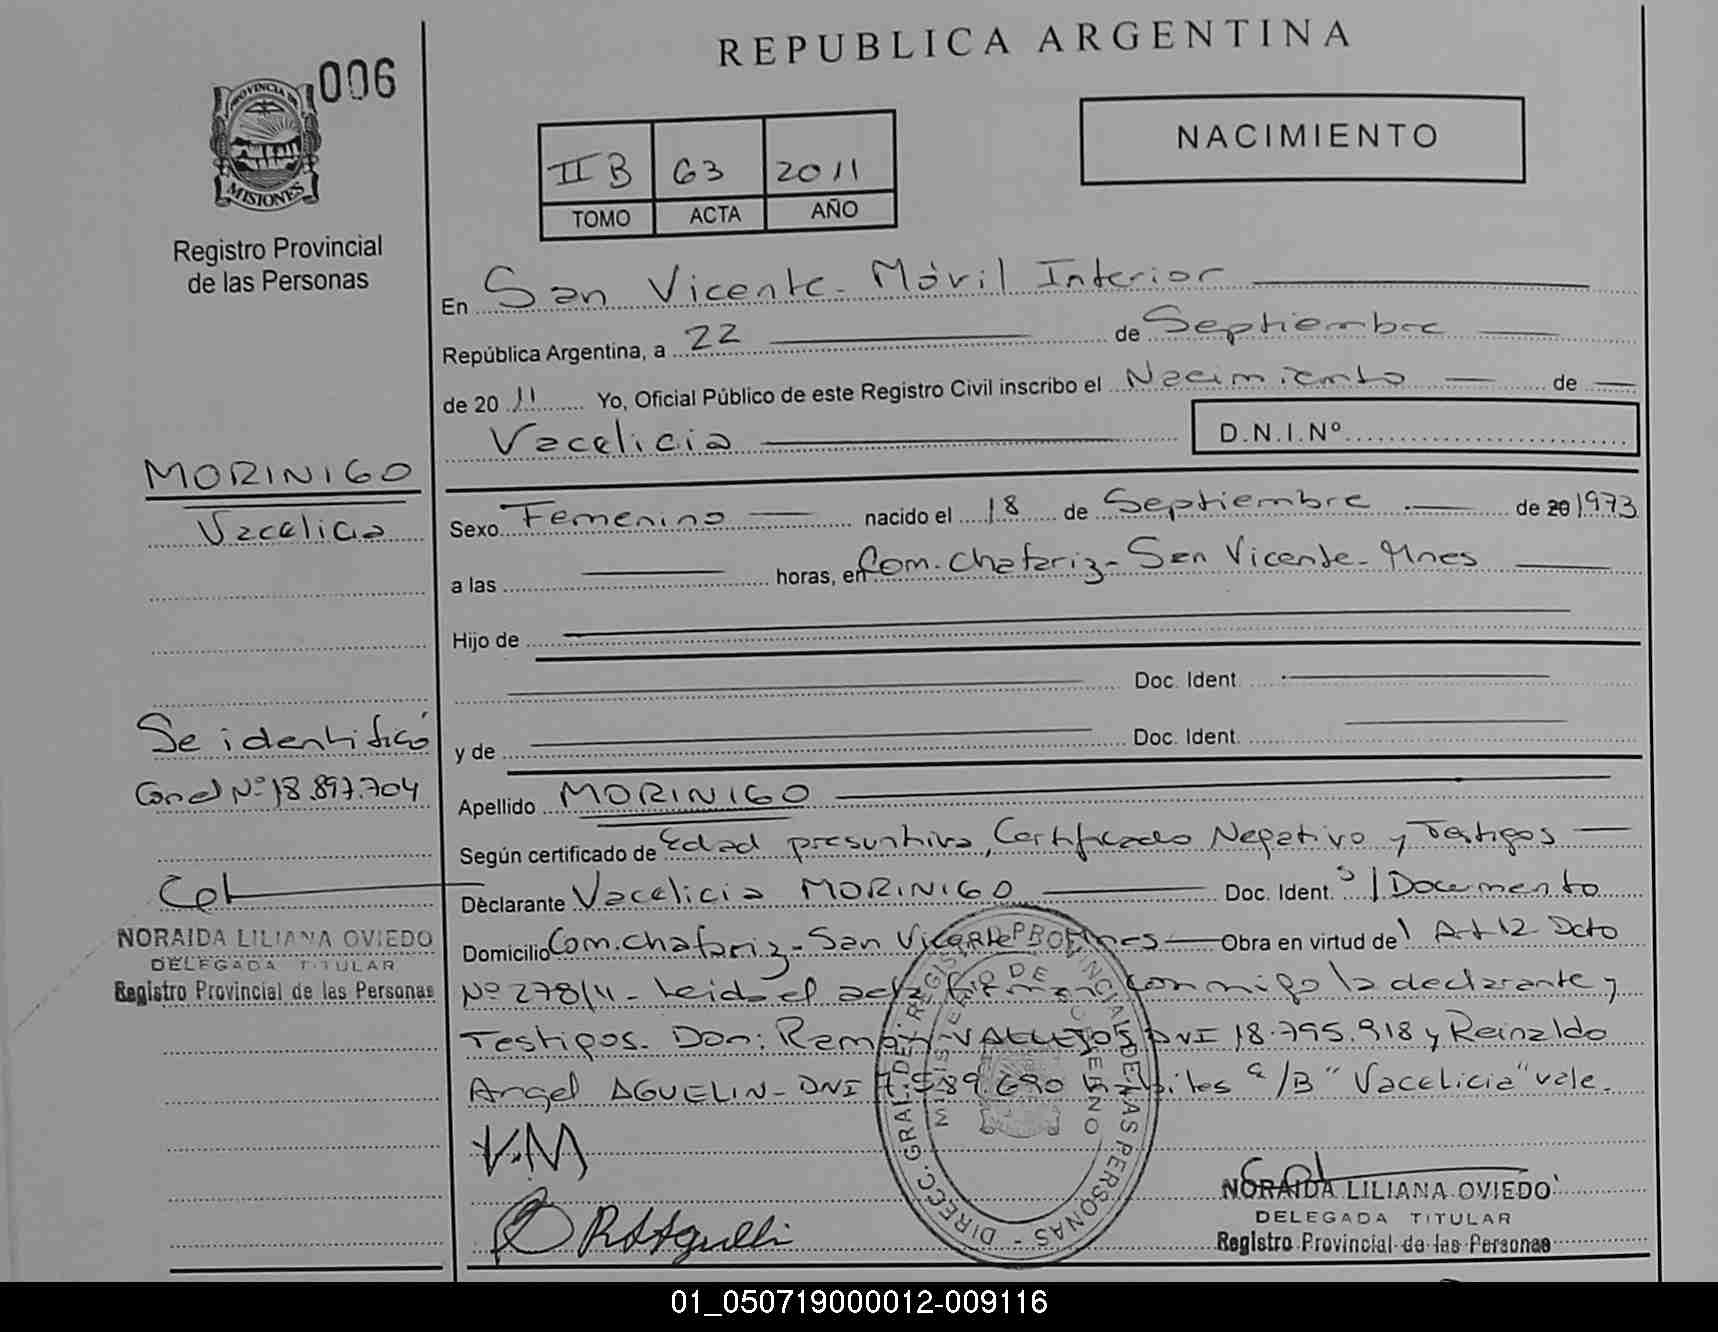 REPUBLICA ARGENTINA
006
PROVINCIA DE
MISIONES
Registro Provincial
de las Personas
II B 63 2011
TOMO ACTA AÑO
NACIMIENTO
En San Vicente - Móvil Interior
República Argentina, a 22 de Septiembre
de 2011 Yo, Oficial Público de este Registro Civil inscribo el Nacimiento de
Vacelicia D.N.I.Nº
MORINIGO
Vacelicia
Sexo Femenino nacido el 18 de Septiembre de 20 1973
a las horas, en Com. Chafariz - San Vicente - Mnes
Hijo de
Doc. Ident.
y de Doc. Ident.
Se identificó
con el Nº 18.897.704
NORAIDA LILIANA OVIEDO
DELEGADA TITULAR
Registro Provincial de las Personas
Apellido MORINIGO
Según certificado de Edad presuntiva, Certificado Negativo y Testigos
Declarante Vacelicia MORINIGO Doc. Ident. S/Documento
Domicilio Com. Chafariz - San Vicente - Mnes Obra en virtud de Art 12 Dcto
Nº 278/11 - Leida el acta firman conmigo la declarante y
Testigos. Don: Ramón VALLEJOS DNI 18.795.918 y Reinaldo
Angel AGUELIN - DNI hábiles E/B "Vacelicia" vale.
V.M
DIRECC. GRAL. DEL REGISTRO PROVINCIAL DE LAS PERSONAS -
MINISTERIO DE GOBIERNO
NORAIDA LILIANA OVIEDO
DELEGADA TITULAR
Registro Provincial de las Personas
01_050719000012-009116